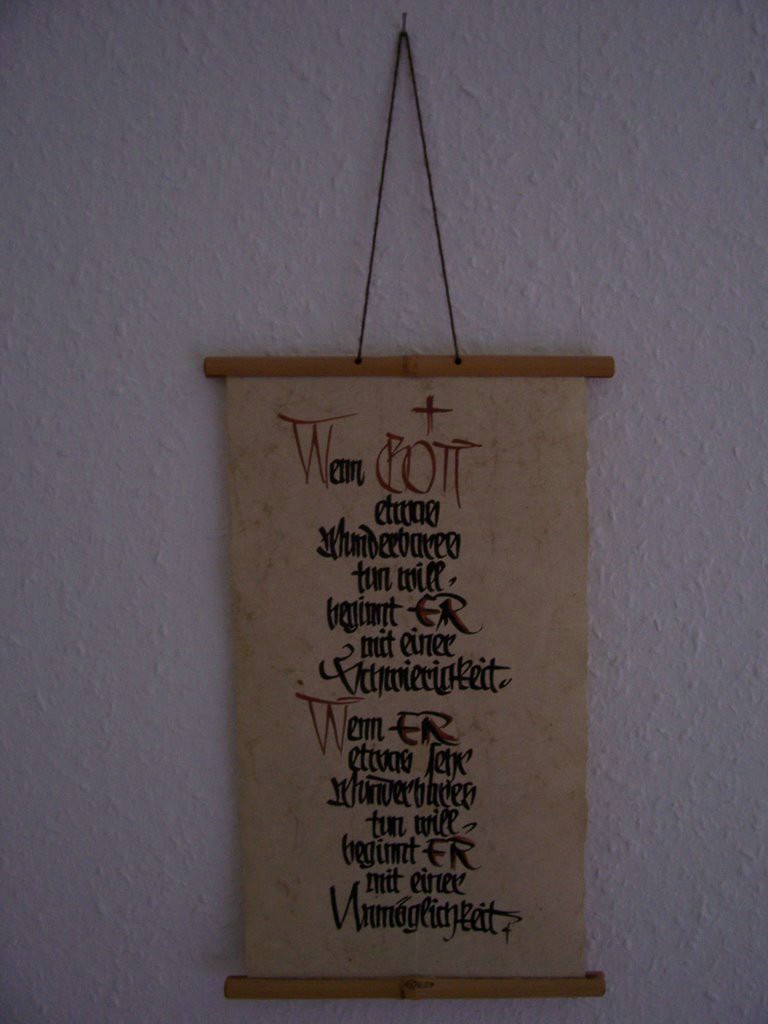 Wenn GOTT
etwas
Wunderbares
tun will,
beginnt ER
mit einer
Schwierigkeit.
Wenn ER
etwas sehr
Wunderbares
tun will,
beginnt ER
mit einer
Unmöglichkeit.